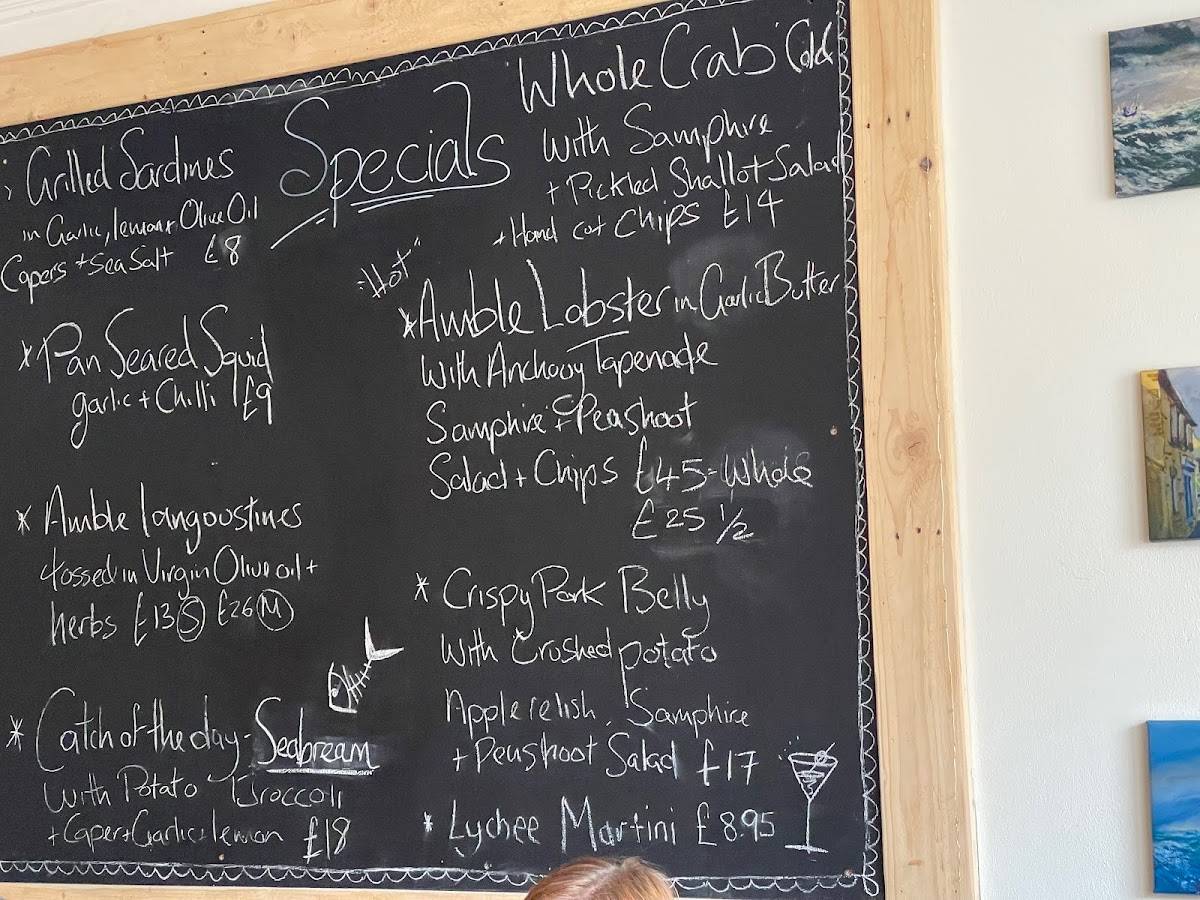 Specials
Grilled Sardines
in Garlic, lemon + Olive Oil
Capers + Sea Salt £8
* Pan Seared Squid
garlic + Chilli £9
* Amble langoustines
tossed in Virgin Olive oil +
herbs £13 (S) £26 (M)
* Catch of the day - Seabream
With Potato Broccoli
+ Caper + Garlic + lemon £18
Whole Crab 'Cold'
With Samphire
+ Pickled Shallot Salad
+ Hand cut Chips £14
"Hot"
* Amble Lobster in Garlic Butter
With Anchovy Tapenade
Samphire + Peashoot
Salad + Chips £45 - Whole
£25 1/2
* Crispy Pork Belly
With Crushed potato
Apple relish, Samphire
+ Peashoot Salad £17
* Lychee Martini £8.95